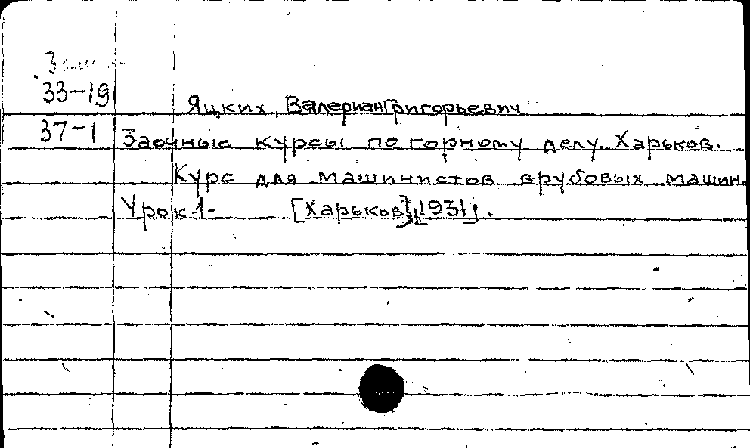 33-19
Яцких, Валериан Григорьевич
37-1
Заочные курсы по горному делу. Харьков.
Курс для машинистов врубовых машин.
Урок 1- [Харьков], 1931.